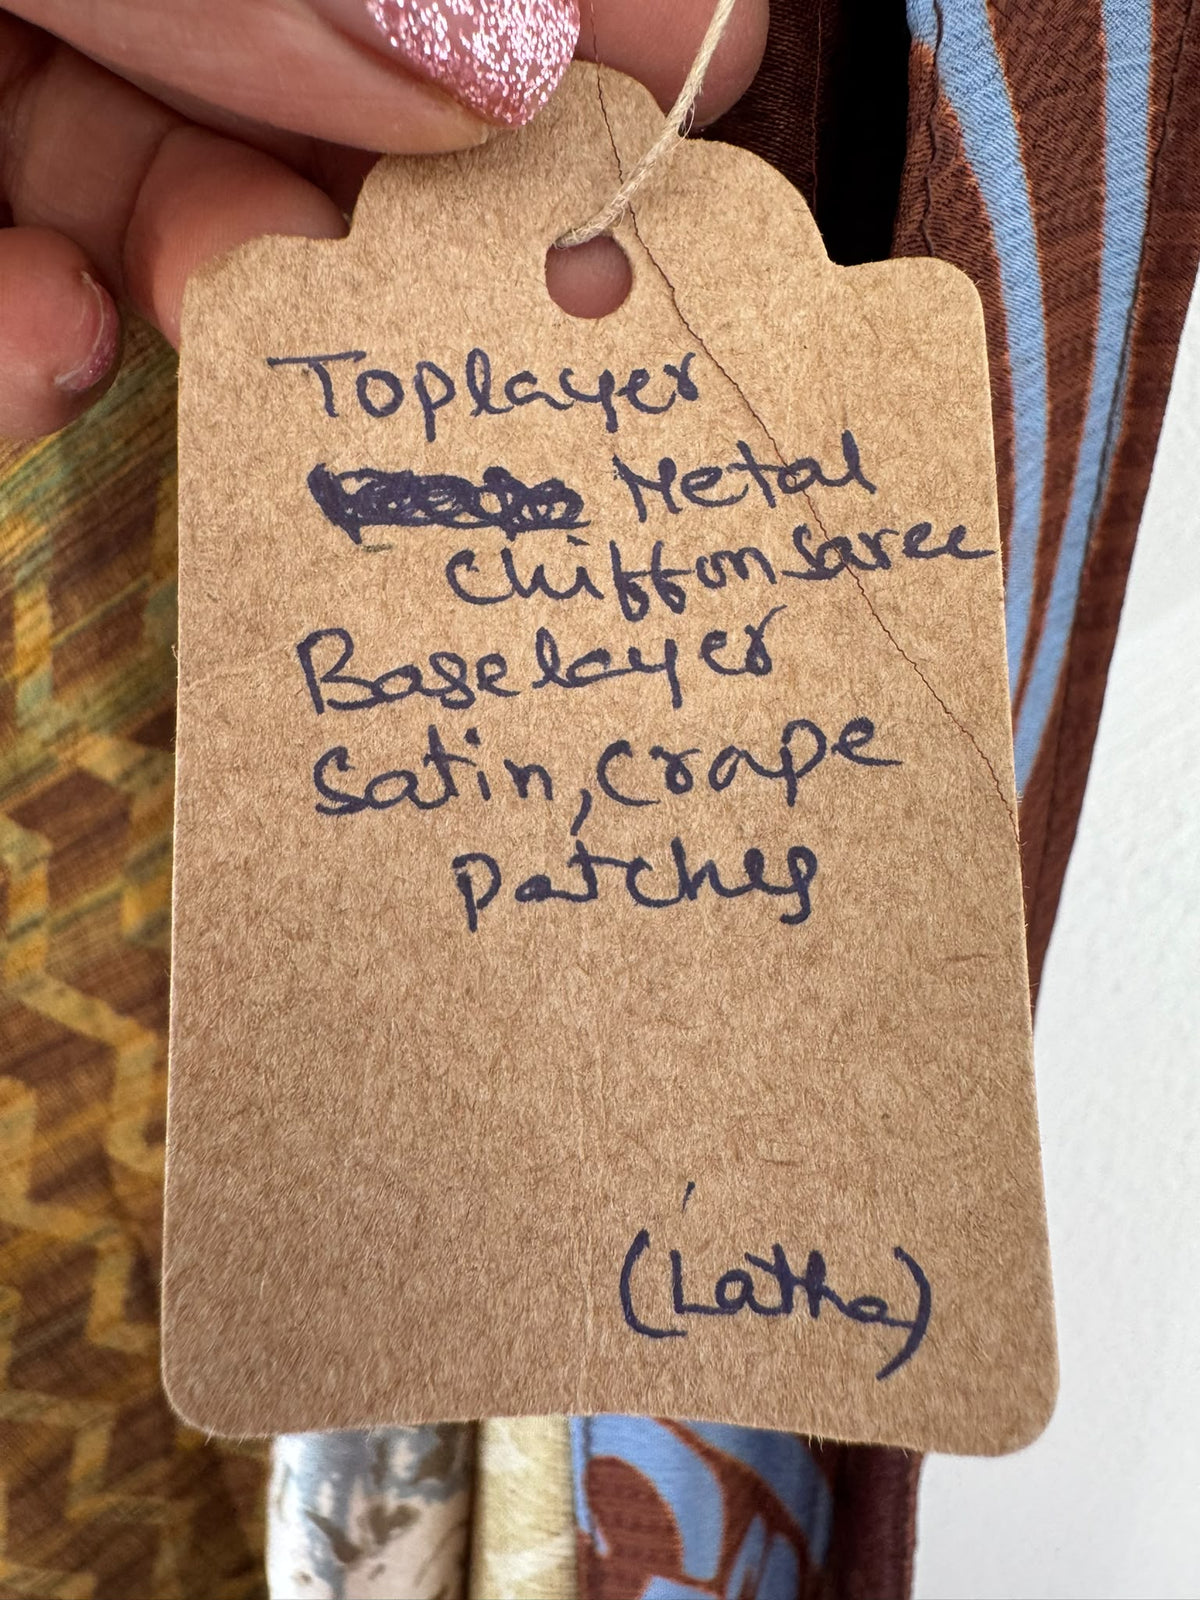 Toplayer
Metal
chiffon saree
Baselayer
satin, crape
patches
(Latha)